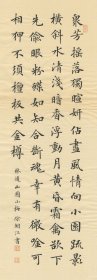 衆芳摇落獨暄妍佔盡風情向小園疏影
橫斜水清淺暗香浮動月黄昏霜禽欲下
先偷眼粉蝶如知合斷魂幸有微吟可
相狎不須檀板共金樽
林逋山園小梅